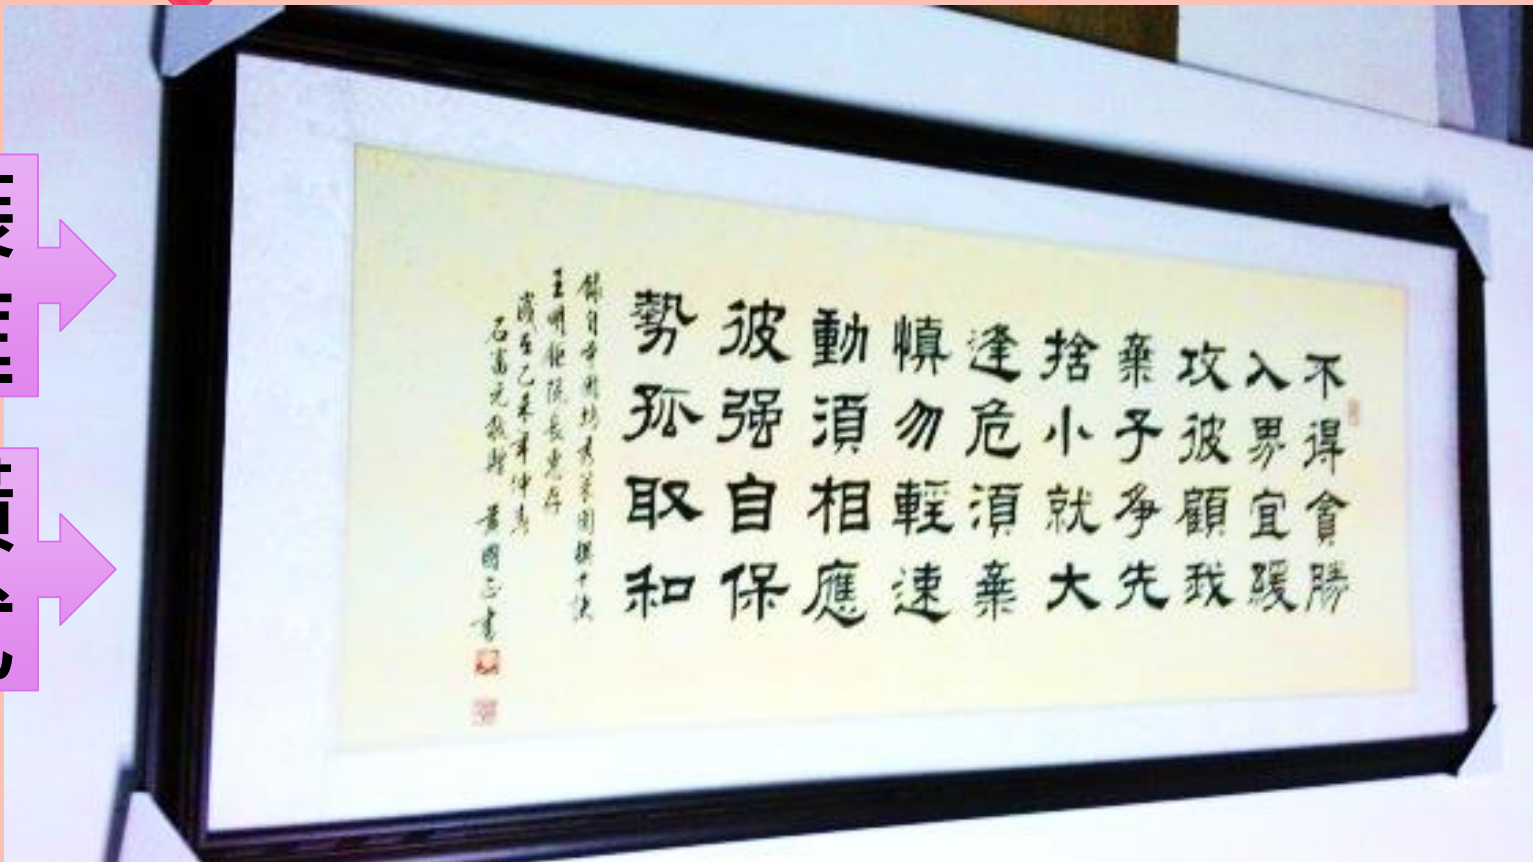 不得貪勝
入界宜緩
攻彼顧我
棄子爭先
捨小就大
逢危須棄
慎勿輕速
動須相應
彼强自保
勢孤取和
錄自 圍 十訣
王明鉅院長惠存
歲在乙未年仲
石富元敬贈 黃國正書